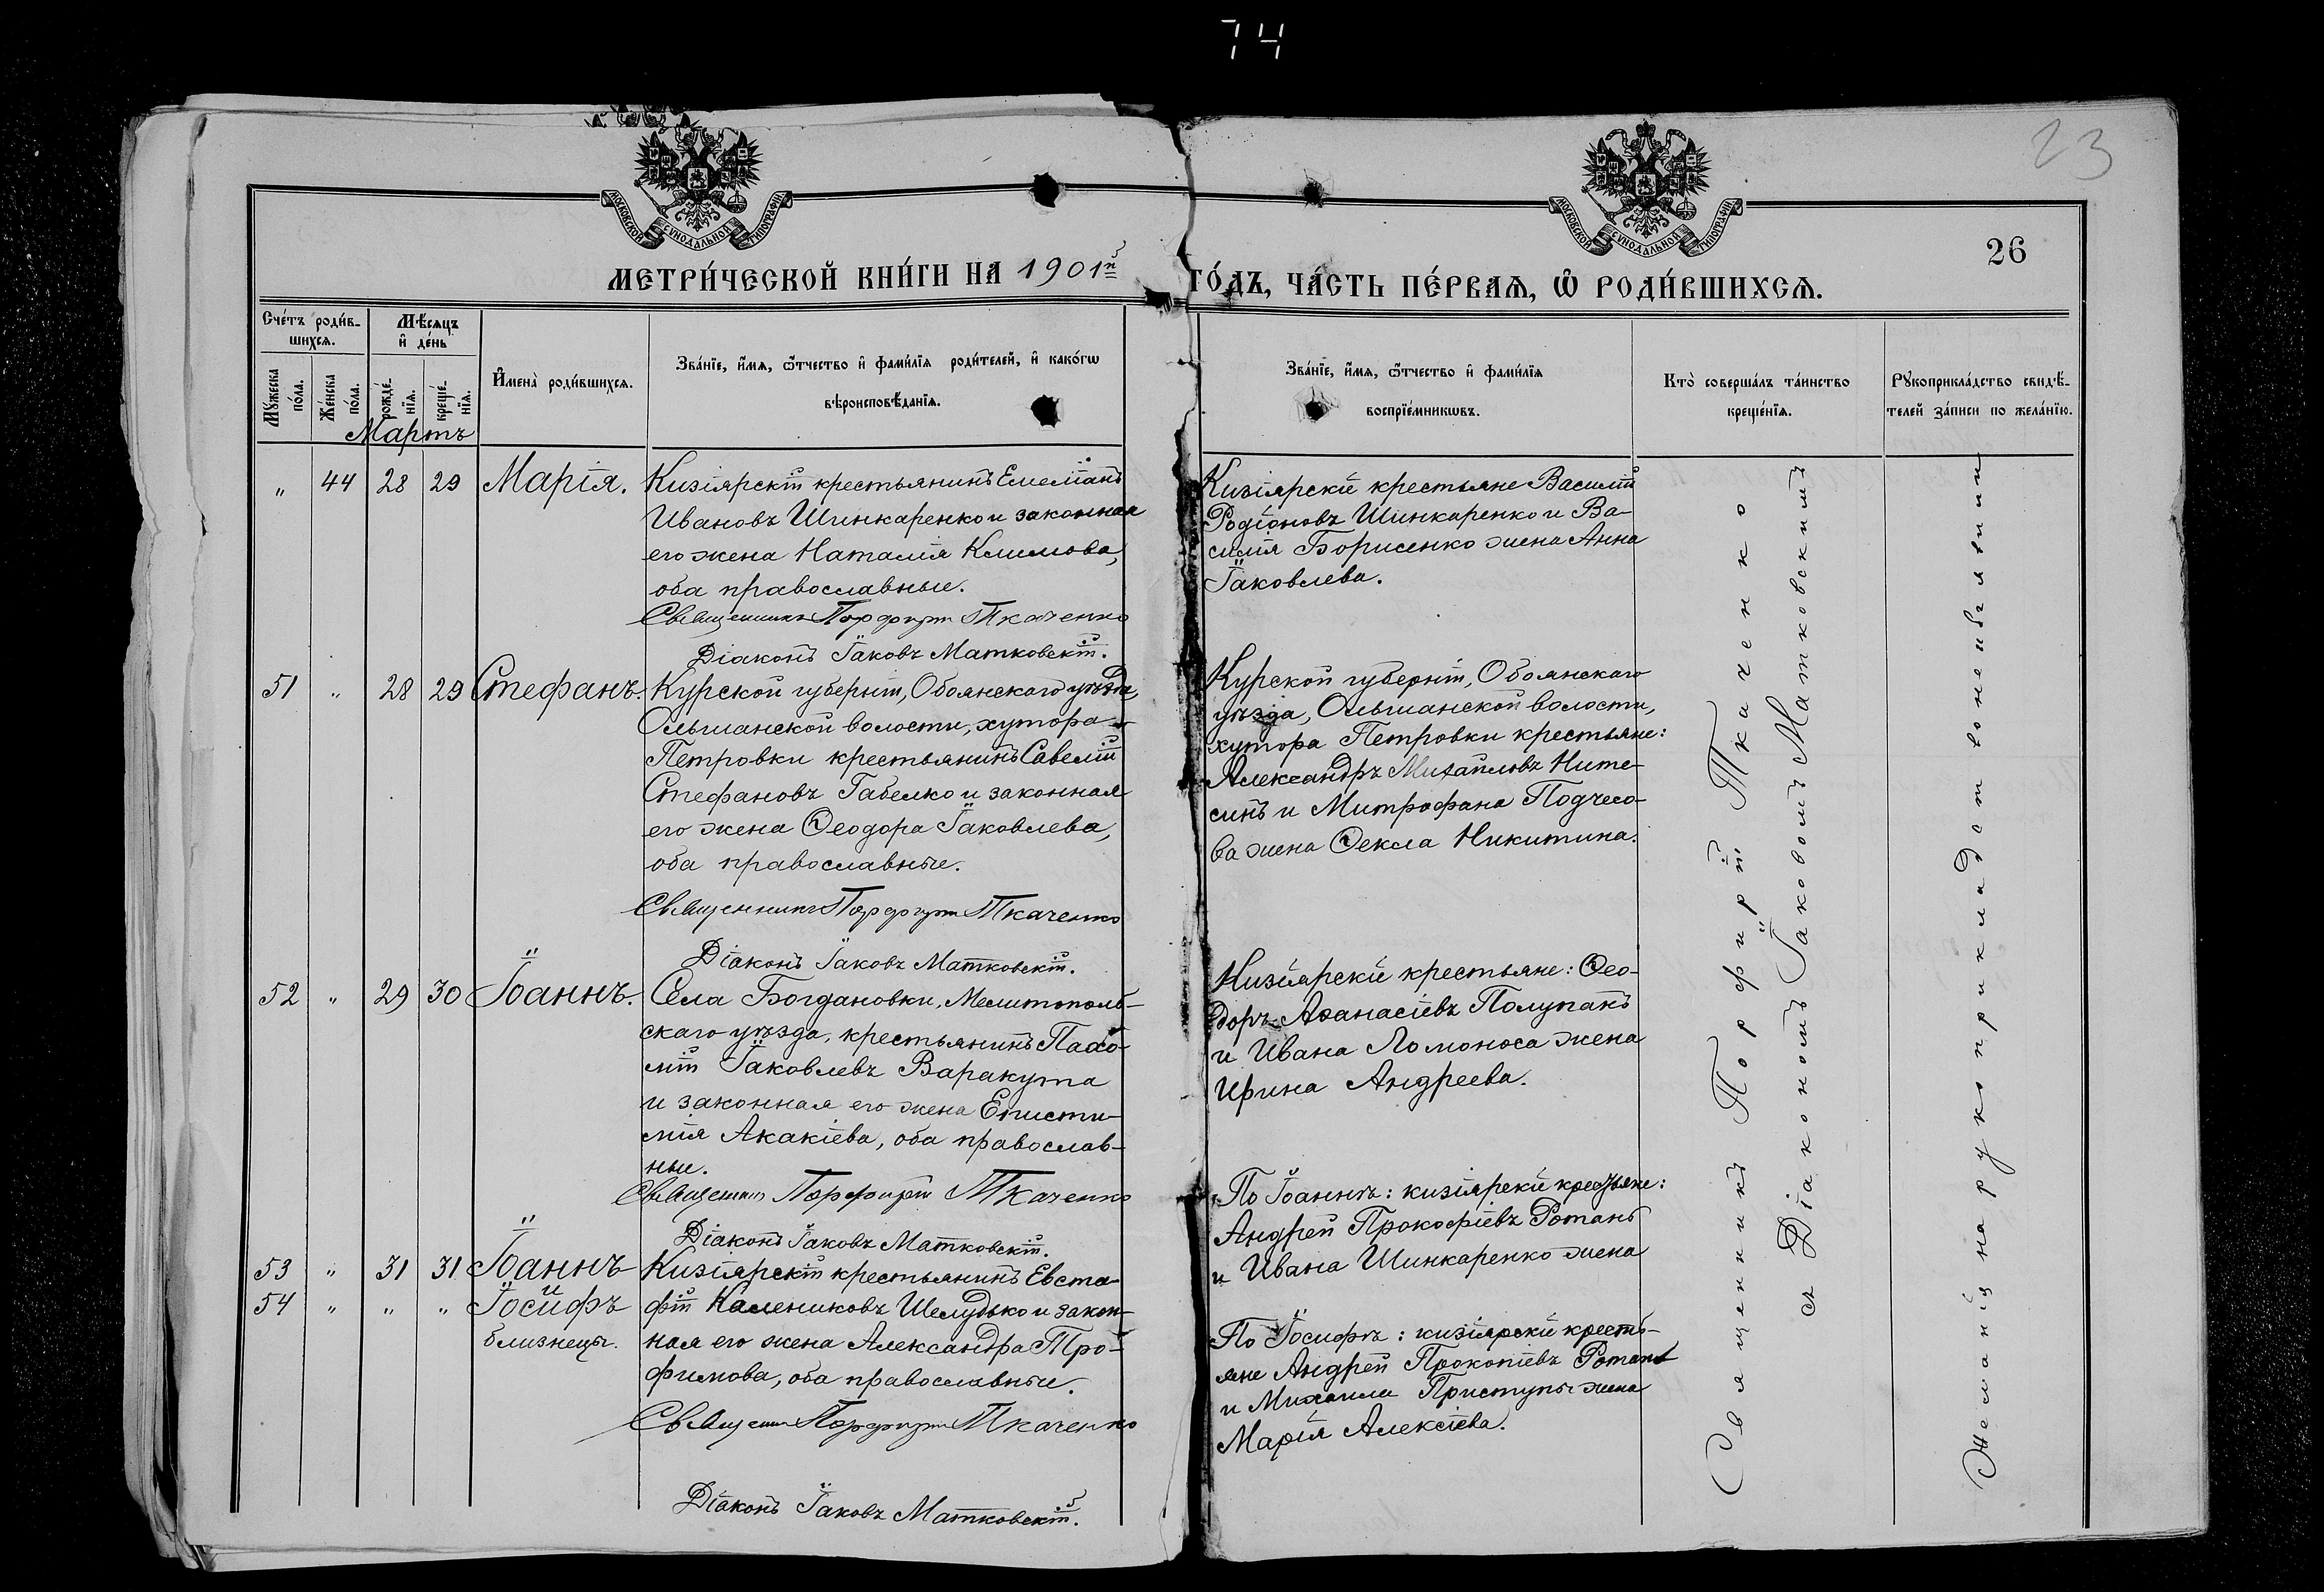 74
23
МОСКОВСКОЙ СѴНОДАЛЬНОЙ ТИПОГРАФІИ
МОСКОВСКОЙ СѴНОДАЛЬНОЙ ТИПОГРАФІИ
26
МЕТРИ́ЧЕСКОЙ КНИ́ГИ НА 1901й
ГО́ДЪ, ЧА́СТЬ ПЕ́РВАѦ, Ѽ РОДИ́ВШИХСѦ.
Сче́тъ роди́в-
шихсѧ.
Мѣ́сѧцъ
и҆ де́нь
Му́жеска по́ла.
Же́нска по́ла.
рожде́-нїѧ.
креще́-нїѧ.
И҆мена̀ роди́вшихсѧ.
Зва́нїе, и҆́мѧ, ѻ҆́тчество и҆ фами́лїѧ роди́телей, и҆ како́гѡ
вѣроисповѣ́данїѧ.
Зва́нїе, и҆́мѧ, ѻ҆́тчество и҆ фами́лїѧ
воспрїе́мникѡвъ.
Кто̀ соверша́лъ та́инство
креще́нїѧ.
Рꙋкоприкла́дство свидѣ́-
телей за́писи по жела́нїю.
Мартъ
" 44 28 29 Марія.
Кизіярскій крестьянинъ Емеліанъ
Ивановъ Шинкаренко и законная
его жена Наталія Климова,
оба православные.
Священникъ Порфирій Ткаченко
Діаконъ Іаковъ Матковскій.
Кизіярскіе крестьяне Василій
Родіоновъ Шинкаренко и Ва-
силія Борисенко жена Анна
Іаковлева.
51 " 28 29 Стефанъ.
Курской губерніи, Обоянскаго уѣзда,
Ольшанской волости, хутора
Петровки крестьянинъ Савелій
Стефановъ Габелко и законная
его жена Ѳеодора Іаковлева,
оба православные.
Священникъ Порфирій Ткаченко
Діаконъ Іаковъ Матковскій.
Курской губерніи, Обоянскаго
уѣзда, Ольшанской волости,
хутора Петровки крестьяне:
Александръ Михаиловъ Ните-
синъ и Митрофана Подчесо-
ва жена Ѳекла Никитина.
52 " 29 30 Іоаннъ.
Села Богдановки, Мелитополь-
скаго уѣзда, крестьянинъ Пахо-
мій Іаковлевъ Варакута
и законная его жена Еписти-
мія Акакіева, оба православ-
ные.
Священникъ Порфирій Ткаченко
Діаконъ Іаковъ Матковскій.
Кизіярскіе крестьяне: Ѳео-
доръ Аѳанасіевъ Полупанъ
и Ивана Ломоноса жена
Ирина Андреева.
53 " 31 31 Іоаннъ
и
54 " " " Іосифъ
близнецы.
Кизіярскій крестьянинъ Евста-
фій Калениковъ Шелудько и закон-
ная его жена Александра Тро-
фимова, оба православные.
Священникъ Порфирій Ткаченко
Діаконъ Іаковъ Матковскій.
По Іоаннѣ: кизіярскіе крестьяне:
Андрей Прокофіевъ Ротань
и Ивана Шинкаренко жена
По Іосифѣ: кизіярскіе кресть-
яне Андрей Прокопіевъ Ротань
и Михаила Приступы жена
Марія Алексіева.
Священникъ Порфирій Ткаченко
съ Діакономъ Іаковомъ Матковскимъ
Желаній на рукоприкладство неизъявили